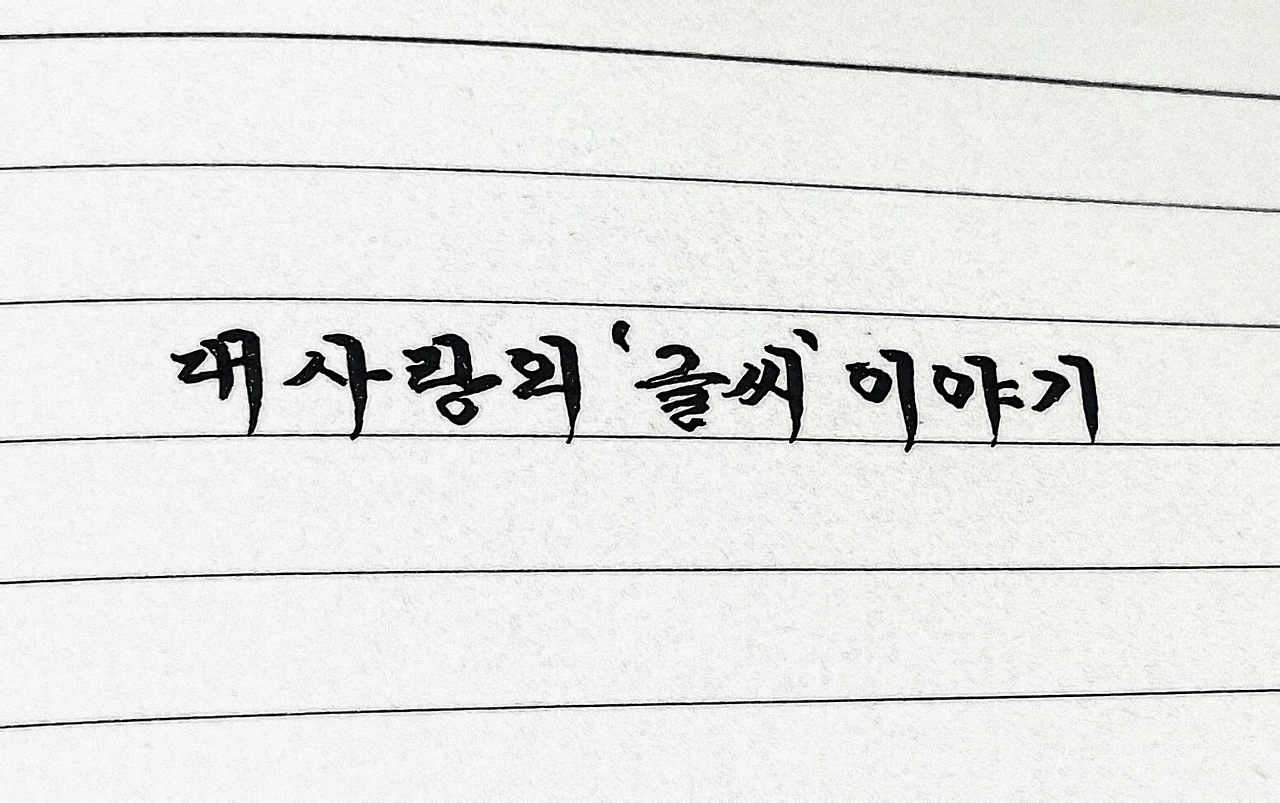 대사랑의 '글씨' 이야기